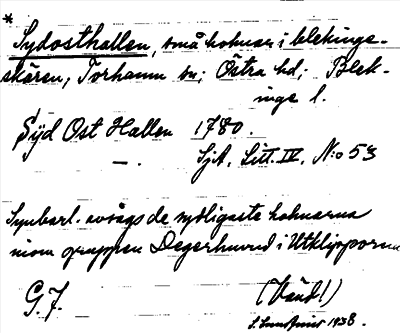 * Sydosthallen, små holmar i blekinge-
skären; Torhamn sn; Östra hd; Blek-
inge l.
Syd Ost Hallen 1780.
—. SjA, Litt. IV, N:o 53
Synbarl. avsågs de sydligaste holmarna
inom gruppen Degerhuvud i Utklipporna
G. F. (Vänd!)
1938.